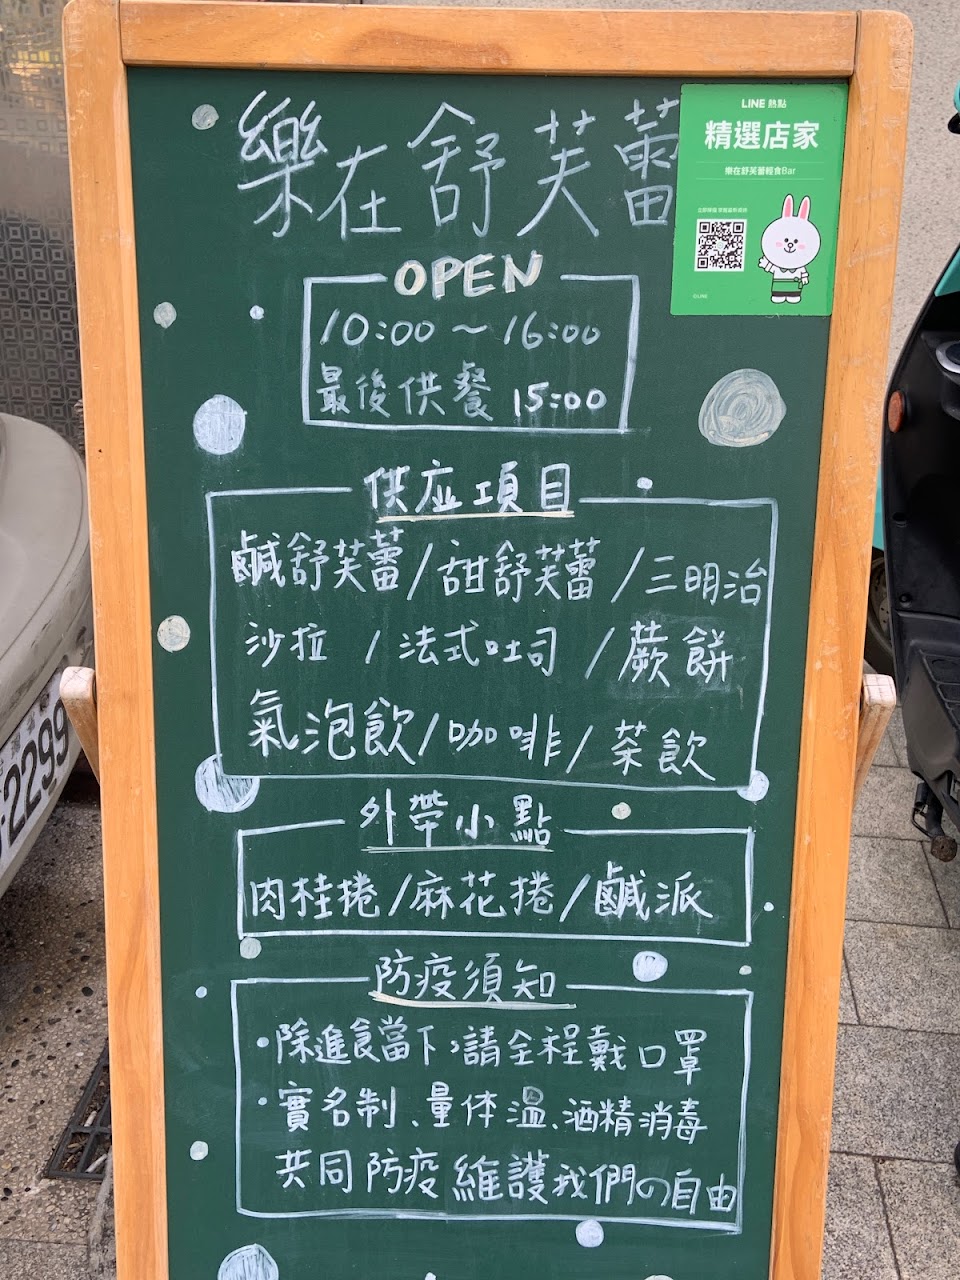 樂在舒芙蕾
LINE 熱點
精選店家
樂在舒芙蕾輕食Bar
©LINE
OPEN
10:00～16:00
最後供餐 15:00
供应項目
鹹舒芙蕾/甜舒芙蕾/三明治
沙拉/法式吐司/蕨餅
氣泡飲/咖啡/茶飲
外帶小點
肉桂捲/麻花捲/鹹派
防疫須知
·除進食當下,請全程戴口罩
·實名制、量体溫、酒精消毒
共同防疫維護我們の自由
2299